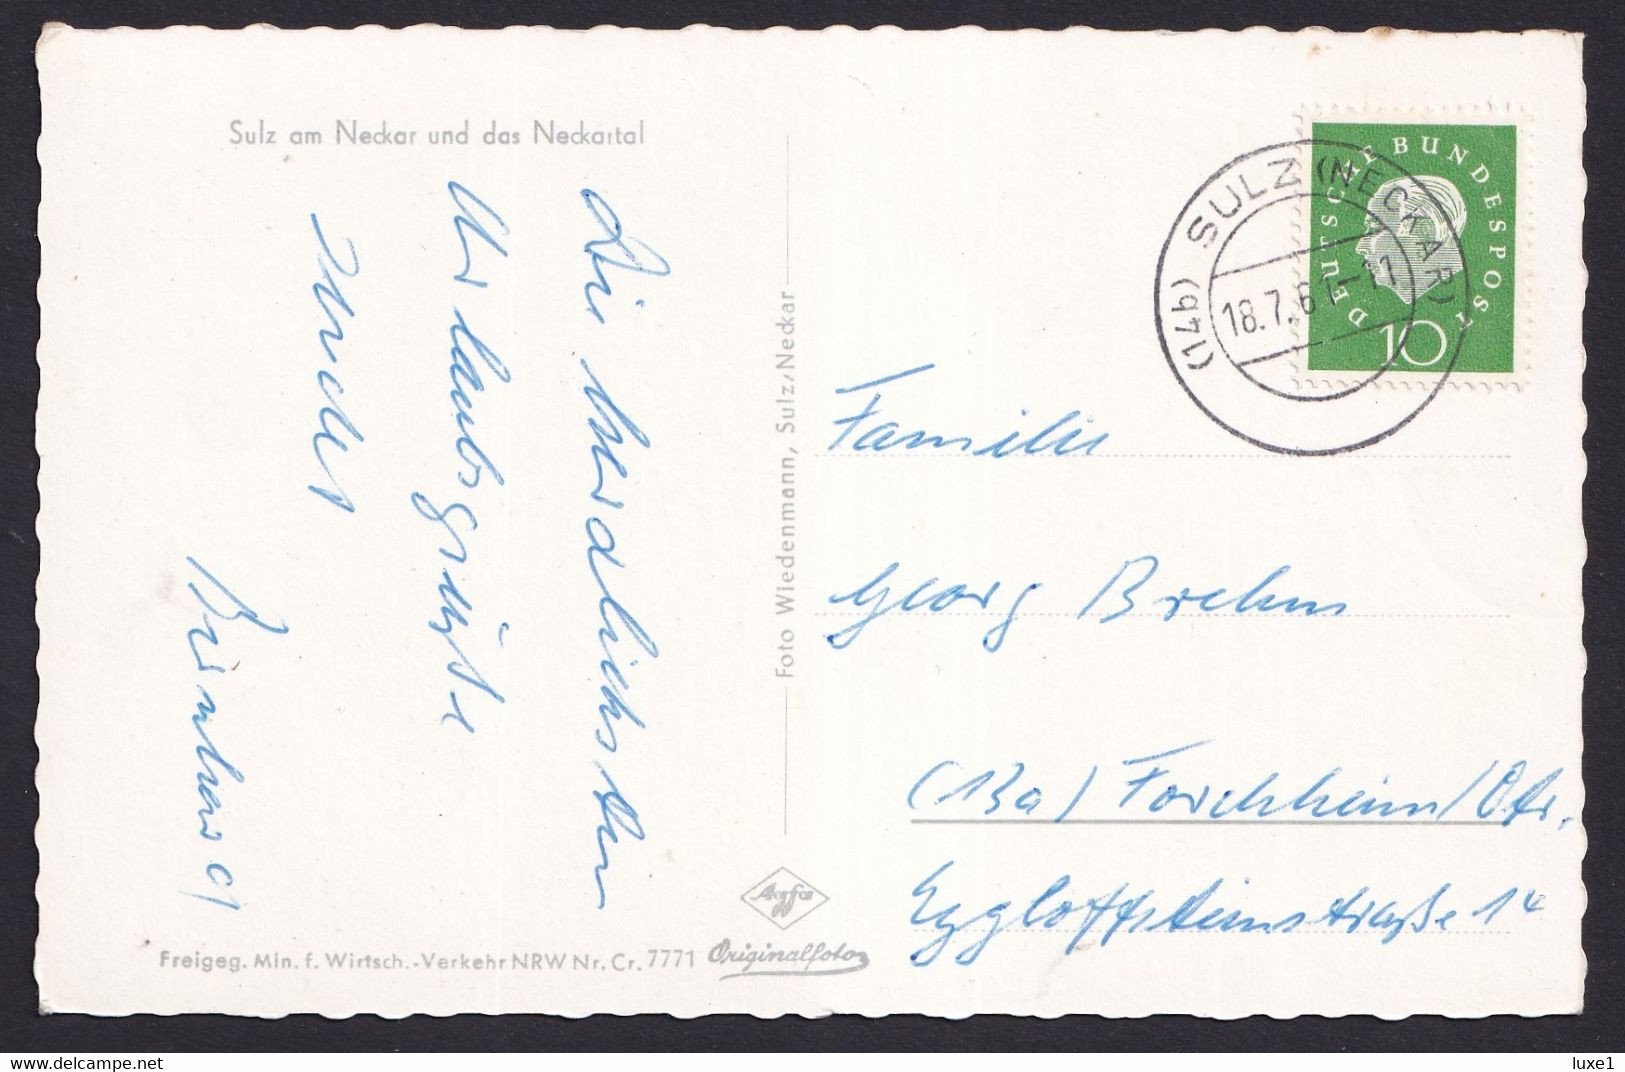 Sulz am Neckar und das Neckartal
Die herzlichsten
Urlaubsgrüße
sendet
Foto Wiedenmann, Sulz/Neckar
Freigeg. Min. f. Wirtsch.-Verkehr NRW Nr. Cr. 7771
Agfa
Originalfoto
DEUTSCHE BUNDESPOST
10
(14b) SULZ (NECKAR)
18.7.61-11
Familie
Georg Brehm
(13a) Forchheim/Ofr.
Egglofsteinstraße 14
luxe1